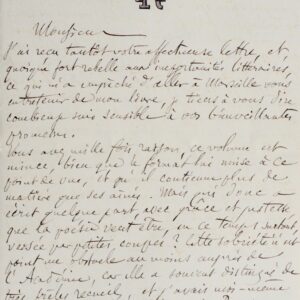 Monsieur
J'ai reçu tantôt votre affectueuse lettre, et
quoique fort rebelle aux importunités littéraires,
ce qui m'a empêché d'aller à Marseille vous
entretenir de mon livre, je tiens à vous dire
combien je suis sensible à vos bienveillantes
promesses.
Vous avez mille fois raison, ce volume est
mince, bien que le format lui nuise à ce
point de vue, et qu'il contienne plus de
matière que ses aînés. Mais qui donc a
écrit quelque part, avec grâce et justesse
que la poésie veut être, en ce temps surtout,
versée par petites coupes? Cette sobriété n'est
point un obstacle au moins auprès de
l'Académie, car elle a souvent distingué de
très recueil, et j'avais moi-même